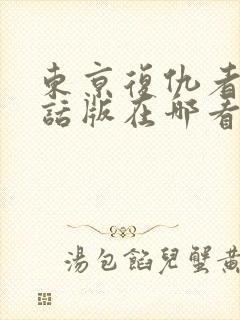 東京復仇者
話版在哪看
湯包餡兒蟹黃